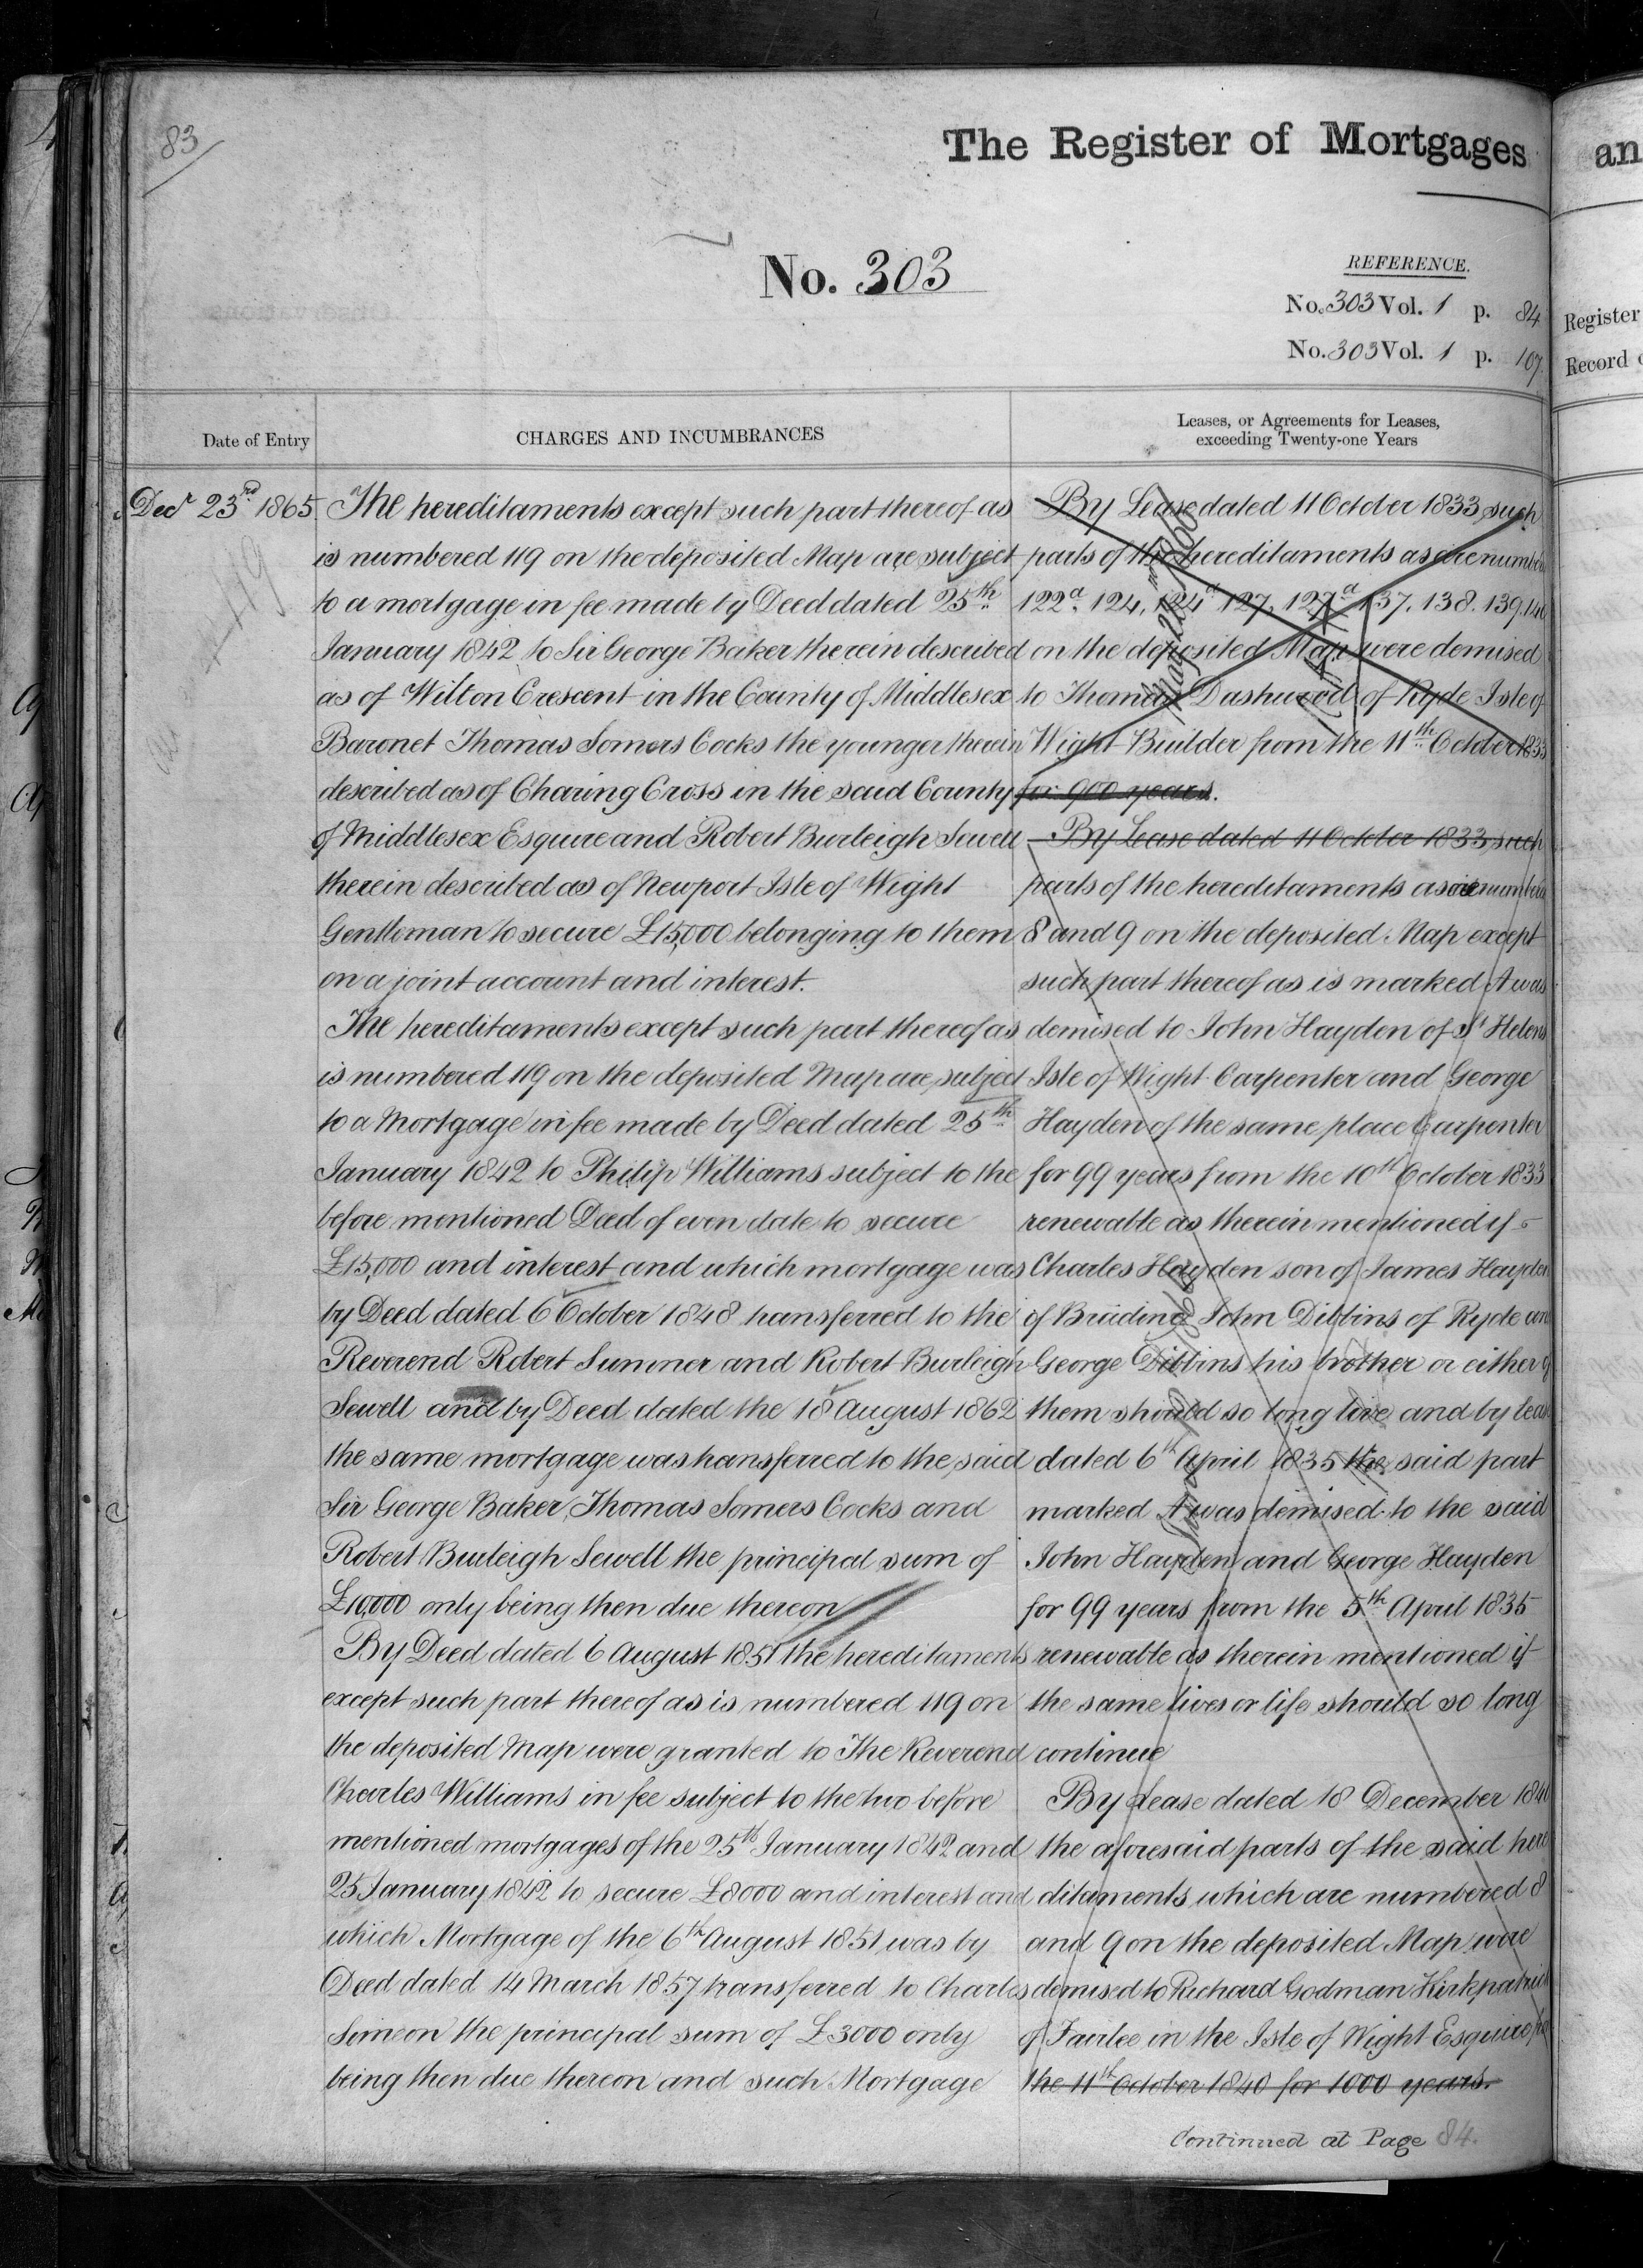 83
The Register of Mortgages
No. 303
REFERENCE.
No. 303 Vol. 1 p. 84
No. 303 Vol. 1 p. 107
an
Register
Record
Date of Entry
CHARGES AND INCUMBRANCES
Leases, or Agreements for Leases,
exceeding Twenty-one Years
Decr 23rd 1865.
The hereditaments except such part thereof as
is numbered 119 on the deposited Map are subject
to a mortgage in fee made by Deed dated 25th
January 1842 to Sir George Baker therein described
as of Wilton Crescent in the County of Middlesex
Baronet Thomas Somers Cocks the younger therein
described as of Charing Cross in the said County
of Middlesex Esquire and Robert Burleigh Sewell
therein described as of Newport Isle of Wight
Gentleman to secure £15,000 belonging to them
on a joint account and interest.
The hereditaments except such part thereof as
is numbered 119 on the deposited Map are subject
to a Mortgage in fee made by Deed dated 25th
January 1842 to Philip Williams subject to the
before mentioned Deed of even date to secure
£15,000 and interest and which mortgage was
by Deed dated 6 October 1848 transferred to the
Reverend Robert Sumner and Robert Burleigh
Sewell and by Deed dated the 18 August 1862
the same mortgage was transferred to the said
Sir George Baker, Thomas Somers Cocks and
Robert Burleigh Sewell the principal sum of
£10,000 only being then due thereon
By Deed dated 6 August 1851 the hereditaments
except such part thereof as is numbered 119 on
the deposited Map were granted to The Reverend
Charles Williams in fee subject to the two before
mentioned mortgages of the 25th January 1842 and
25 January 1842 to secure £8000 and interest and
which Mortgage of the 6th August 1851 was by
Deed dated 14 March 1857 transferred to Charles
Simeon the principal sum of £3000 only
being then due thereon and such Mortgage
By Lease dated 11 October 1833 such
parts of the hereditaments as are number
122a. 124. 124a 127. 127a 137. 138. 139. 140
on the deposited Map were demised
to Thomas Dashwood of Ryde Isle of
Wight Builder from the 11th October 1833
for 900 years.
By Lease dated 11 October 1833 such
parts of the hereditaments as are number
8 and 9 on the deposited Map except
such part thereof as is marked A was
demised to John Hayden of St Helens
Isle of Wight Carpenter and George
Hayden of the same place Carpenter
for 99 years from the 10th October 1833
renewable as therein mentioned if
Charles Hayden son of James Hayden
of Brading John Dibbins of Ryde and
George Dibbins his brother or either of
them should so long live and by lease
dated 6th April 1835 the said part
marked A was demised to the said
John Hayden and George Hayden
for 99 years from the 5th April 1835
renewable as therein mentioned if
the same lives or life should so long
continue
By Lease dated 18 December 1840
the aforesaid parts of the said here
ditaments which are numbered 8
and 9 on the deposited Map were
demised to Richard Godman Kirkpatrick
of Fairlee in the Isle of Wight Esquire
the 11th October 1840 for 1000 years.
Continued at Page 84.